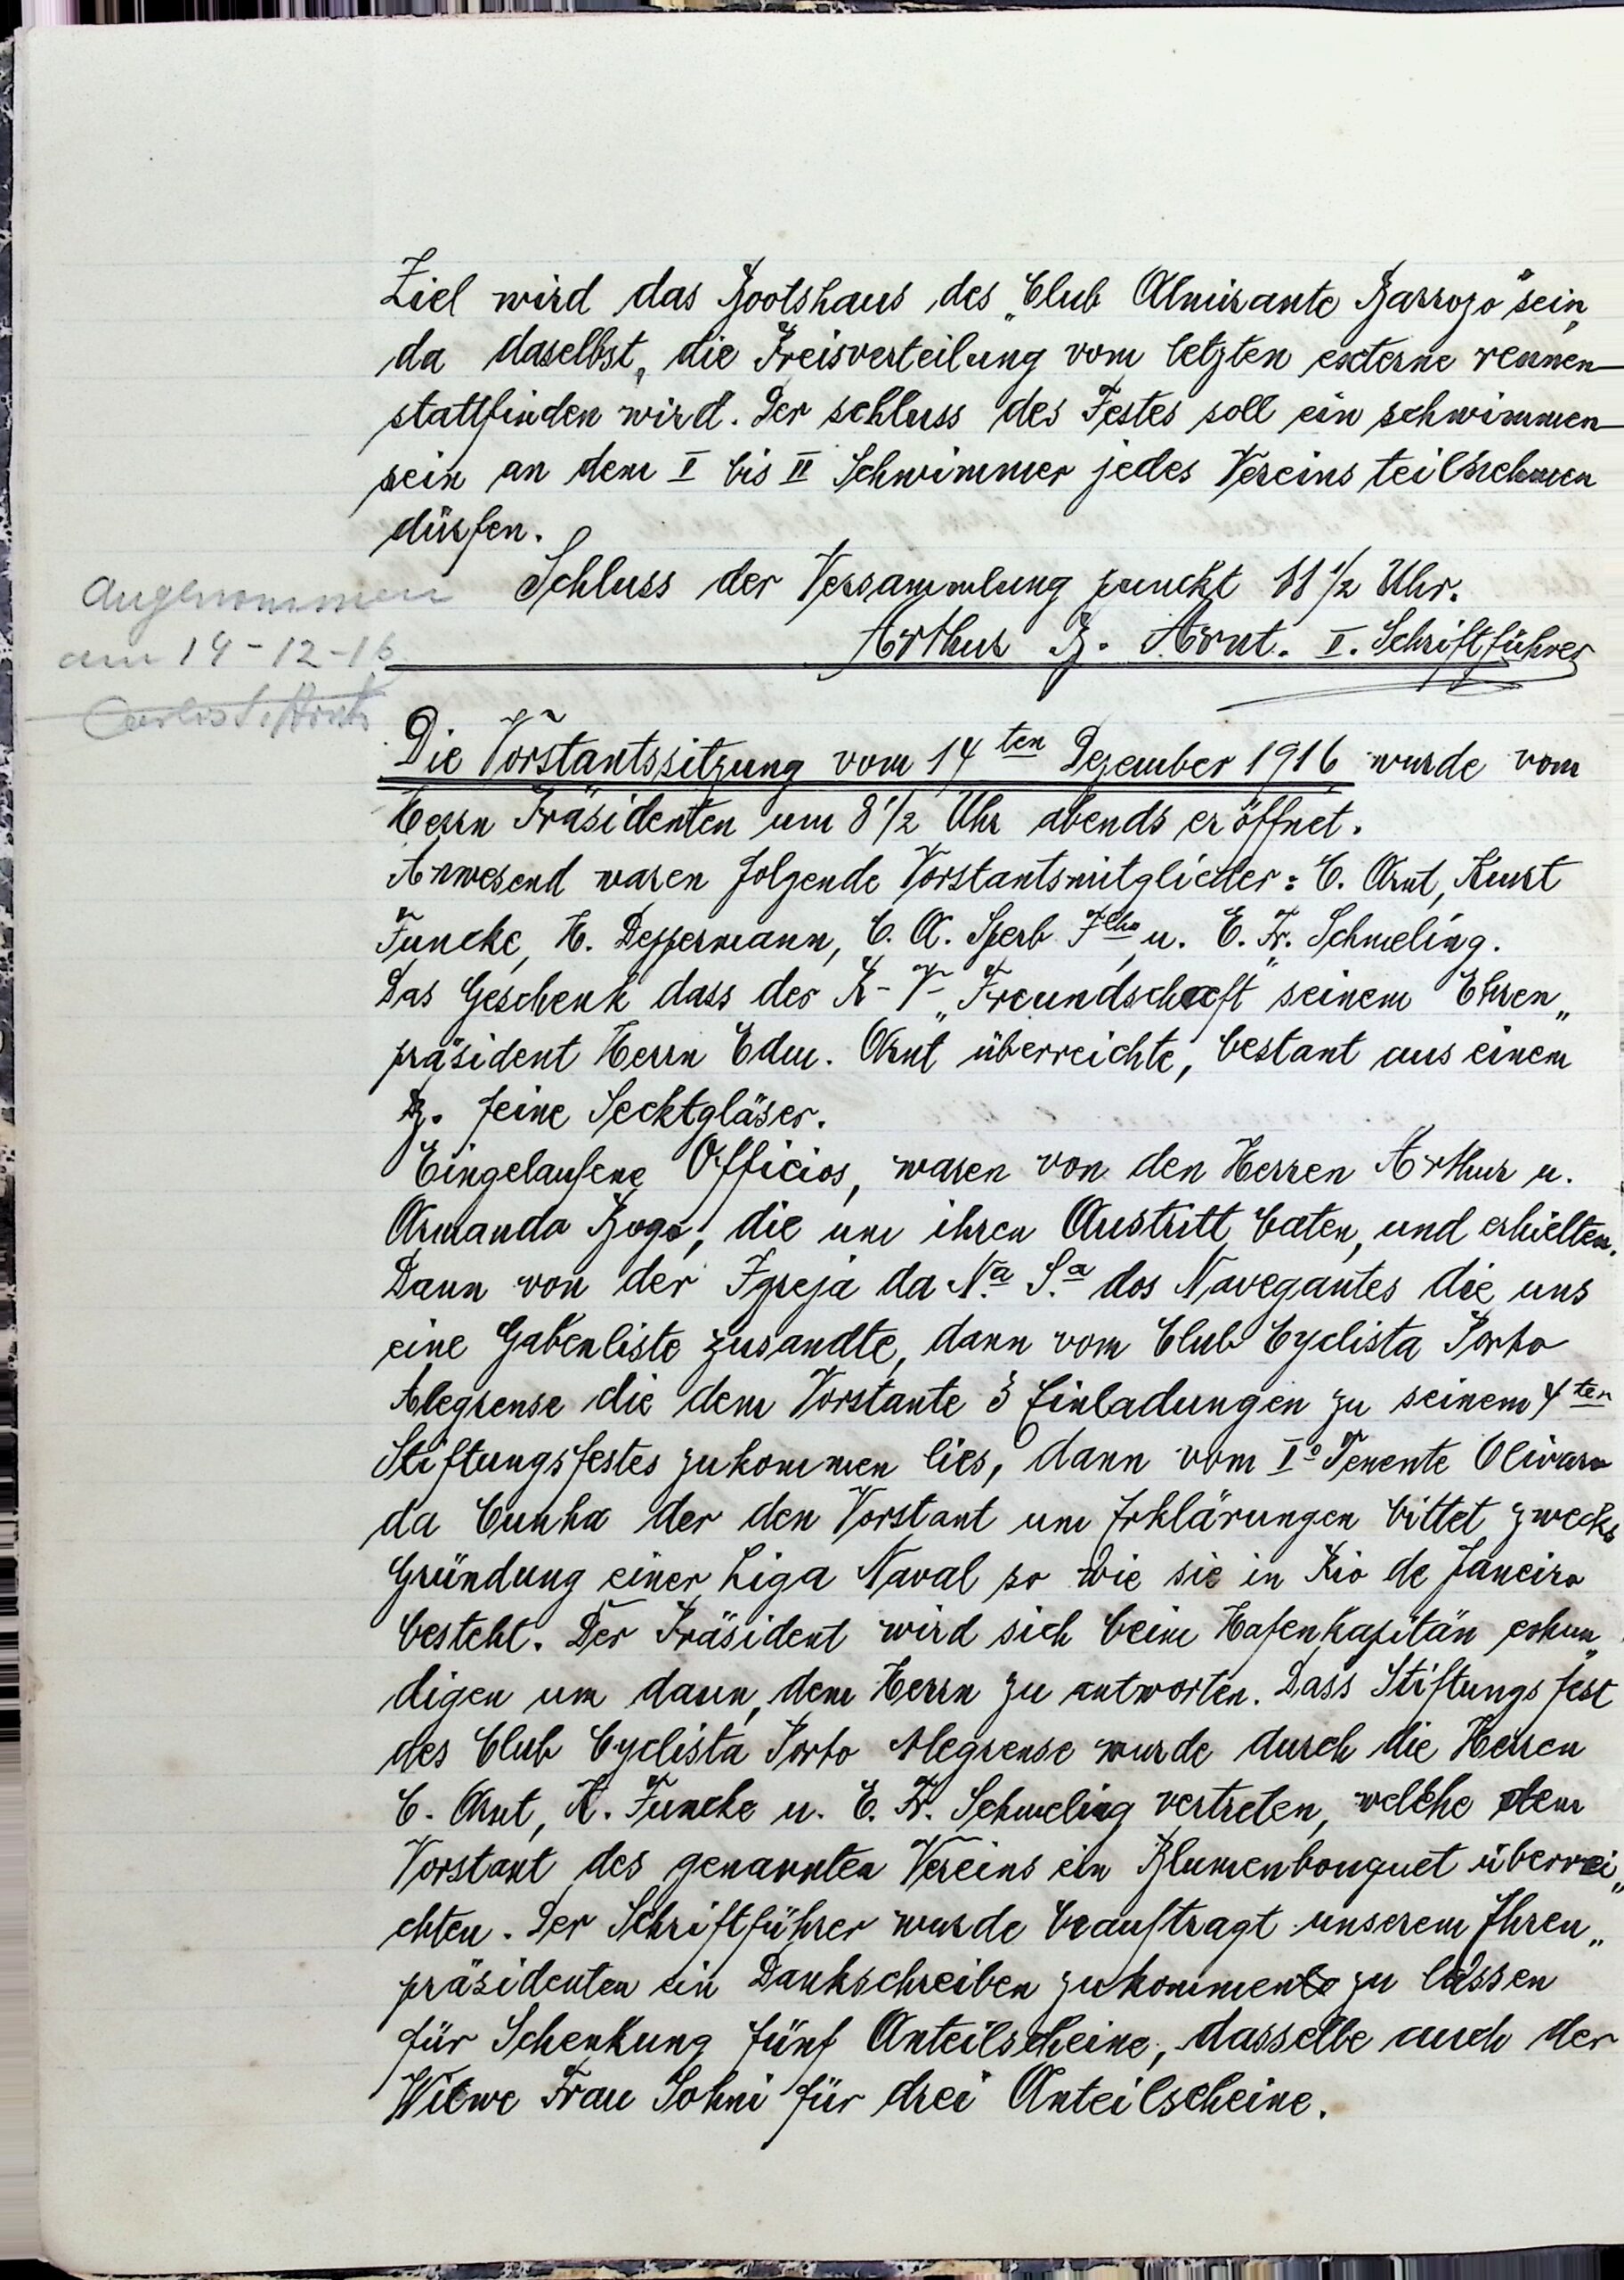 Ziel wird das Bootshaus des „Club Almirante Barrozo" sein,
da daselbst, die Preisverteilung vom letzten externe rennen
stattfinden wird. Der schluss des Festes soll ein schwimmen
sein an dem I bis II Schwimmer jedes Vereins teilnehmen
dürfen.
Schluss der Versammlung punckt 11 1/2 Uhr.
Arthur B. Arnt. II. Schriftführer
Angenommen
am 14-12-16
Die Vorstantssitzung vom 14ten Dezember 1916 wurde vom
Herrn Präsidenten um 8 1/2 Uhr abends eröffnet.
Anwesend waren folgende Vorstantsmitglieder: C. Arnt, Kurt
Funcke, H. Deppermann, C. A. Sperb Flho, u. E. Fr. Schmeling.
Das Geschenk dass der R-V- „Freundschaft" seinem Ehren„
präsident Herrn Edm. Arnt überreichte, bestant aus einem
Dz. feine Secktgläser.
Eingelaufene Officios, waren von den Herren Arthur u.
Armando Bogo, die um ihren Austritt baten, und erhielten.
Dann von der Igreja da Na. Sa. dos Navegantes die uns
eine Gabenliste zusandte, dann vom Club Cyclista Porto
Alegrense die dem Vorstante 3 Einladungen zu seinem 4ten
Stiftungsfestes zukommen lies, dann vom Iº Tenente
da Cunha der den Vorstant um Erklärungen bittet zwecks
Gründung einer Liga Naval so wie sie in Rio de Janeiro
besteht. Der Präsident wird sich beim Hafenkapitän erkun„
digen um dann, dem Herrn zu antworten. Dass Stiftungsfest
des Club Cyclista Porto Alegrense wurde durch die Herren
C. Arnt, K. Funcke u. E. Fr. Schmeling vertreten, welche dem
Vorstant des genannten Vereins ein Blumenbouquet überrei„
chten. Der Schriftführer wurde beauftragt unserem Ehren„
präsidenten ein Dankschreiben zukommen zu lassen
für Schenkung fünf Anteilscheine, dasselbe auch der
Witwe Frau Sohni für drei Anteilscheine.